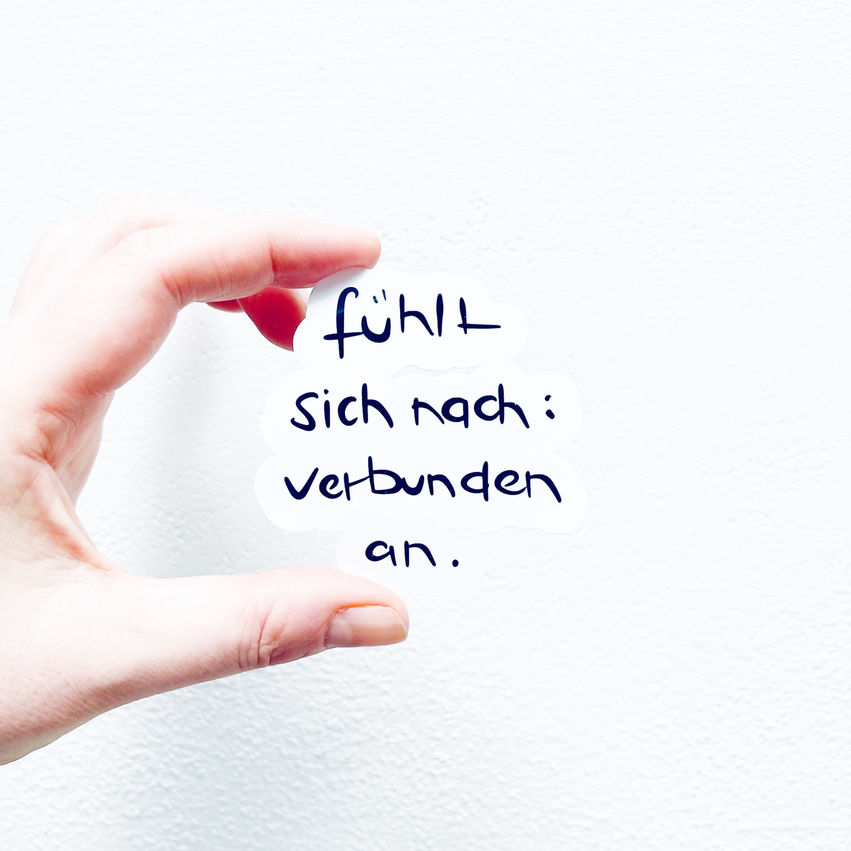 fühlt
sich nach:
verbunden
an.